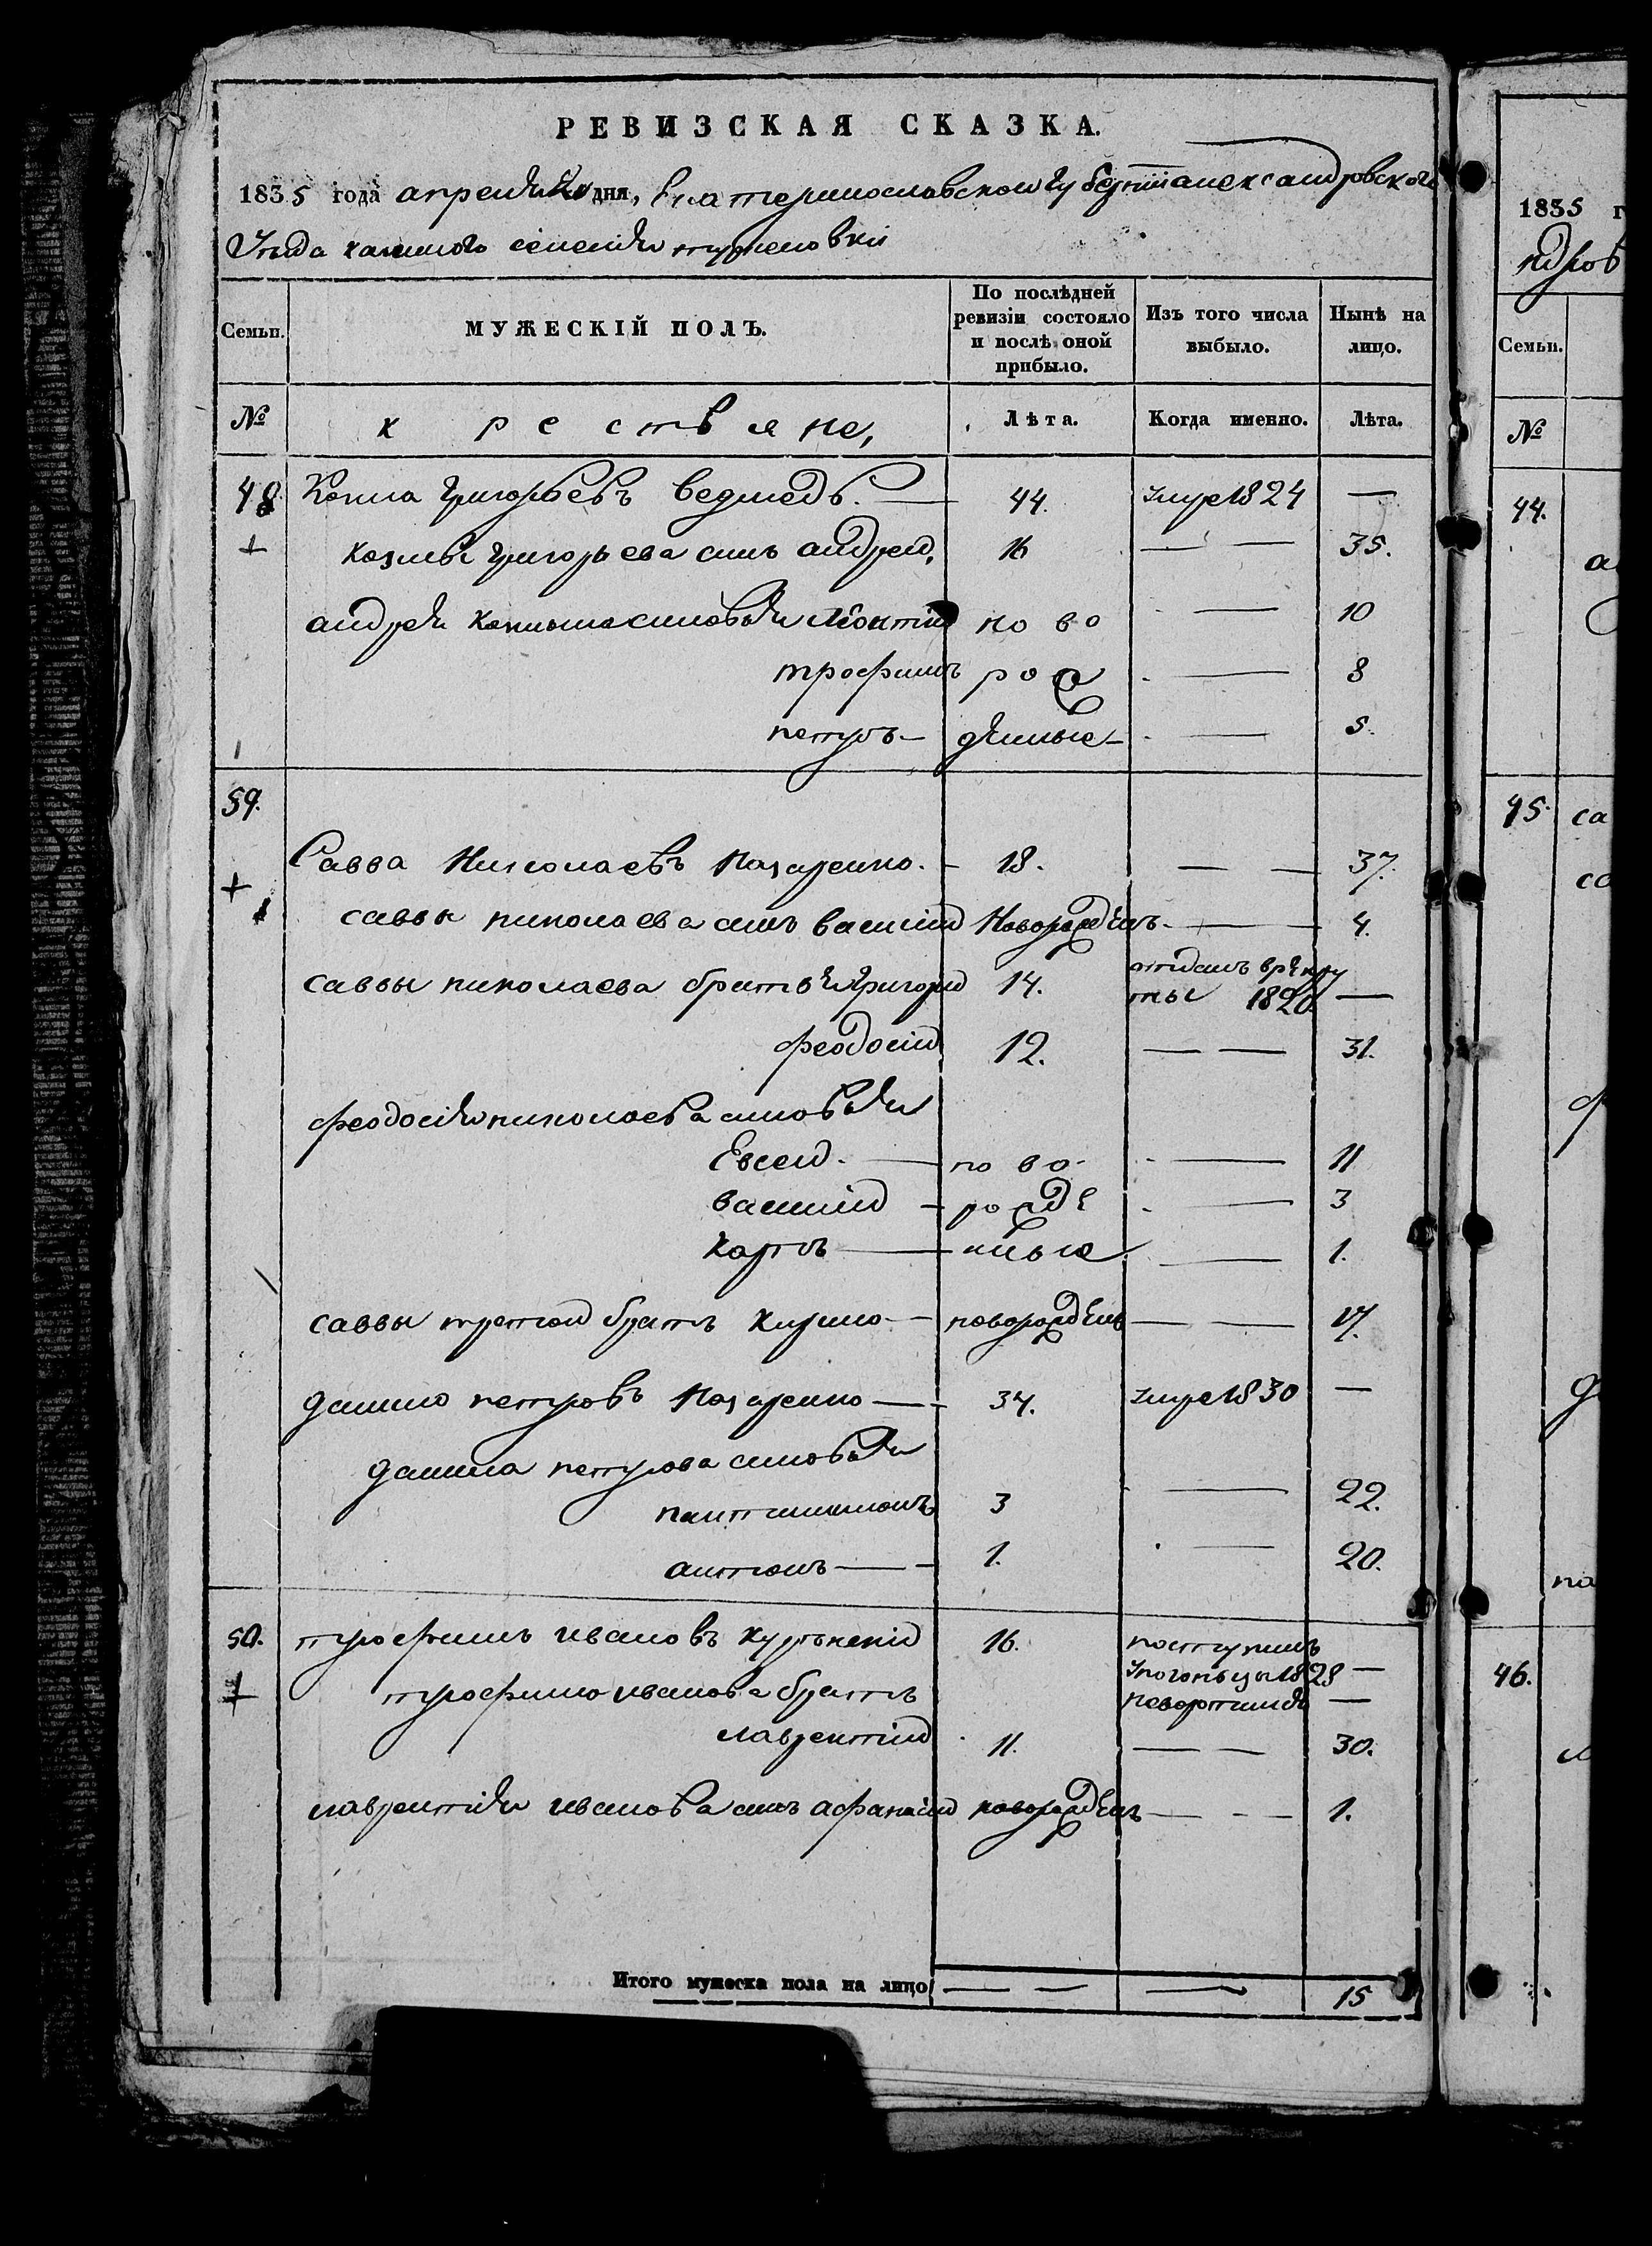 РЕВИЗСКАЯ СКАЗКА.
1835 года апреля дня, Екатеринославской губерніи александровского
Уезда казенного селенія туркеновки
Семьи. МУЖЕСКІЙ ПОЛЪ. По послѣдней ревизіи состояло и послѣ оной прибыло. Изъ того числа выбыло. Нынѣ на лицо.
№ крестьяне, Лѣта. Когда именно. Лѣта.
48 Козма григорьевъ ведмедь. — 44. умре 1824 —
+ козмы григорьева синъ андрей, 16 — — 35.
андрея козьмина синовья леонтій ново — 10
трофимъ рож — 8
петръ — денные — 5.
59.
Савва Николаевъ Назаренко. — 18. — — 37.
+ саввы николаева синъ василій Новорожденъ — — 4.
саввы николаева братья григорій 14. отданъ врекру
ты 1820 —
феодосій 12. — — 31.
феодосія николаева синовья
Евсей. — но во — 11
василій — рожде — 3
карпъ — нные — 1.
саввы третій братъ кирило — новорожденъ — — 17.
данило петровъ Назаренко — 34. умре 1830 —
данила петрова синовья
пантилимонъ 3 — 22.
антонъ — 1. — 20.
50. трофимъ ивановъ 16. поступилъ
1828 —
+ трофима иванова братъ —
лаврентій 11. — — 30.
лаврентія иванова синъ афанасій новорожденъ — — 1.
Итого мужеска пола на лицо — — — 15
1835 г
ндров
Семьи.
№
44.
45. са
со
46.